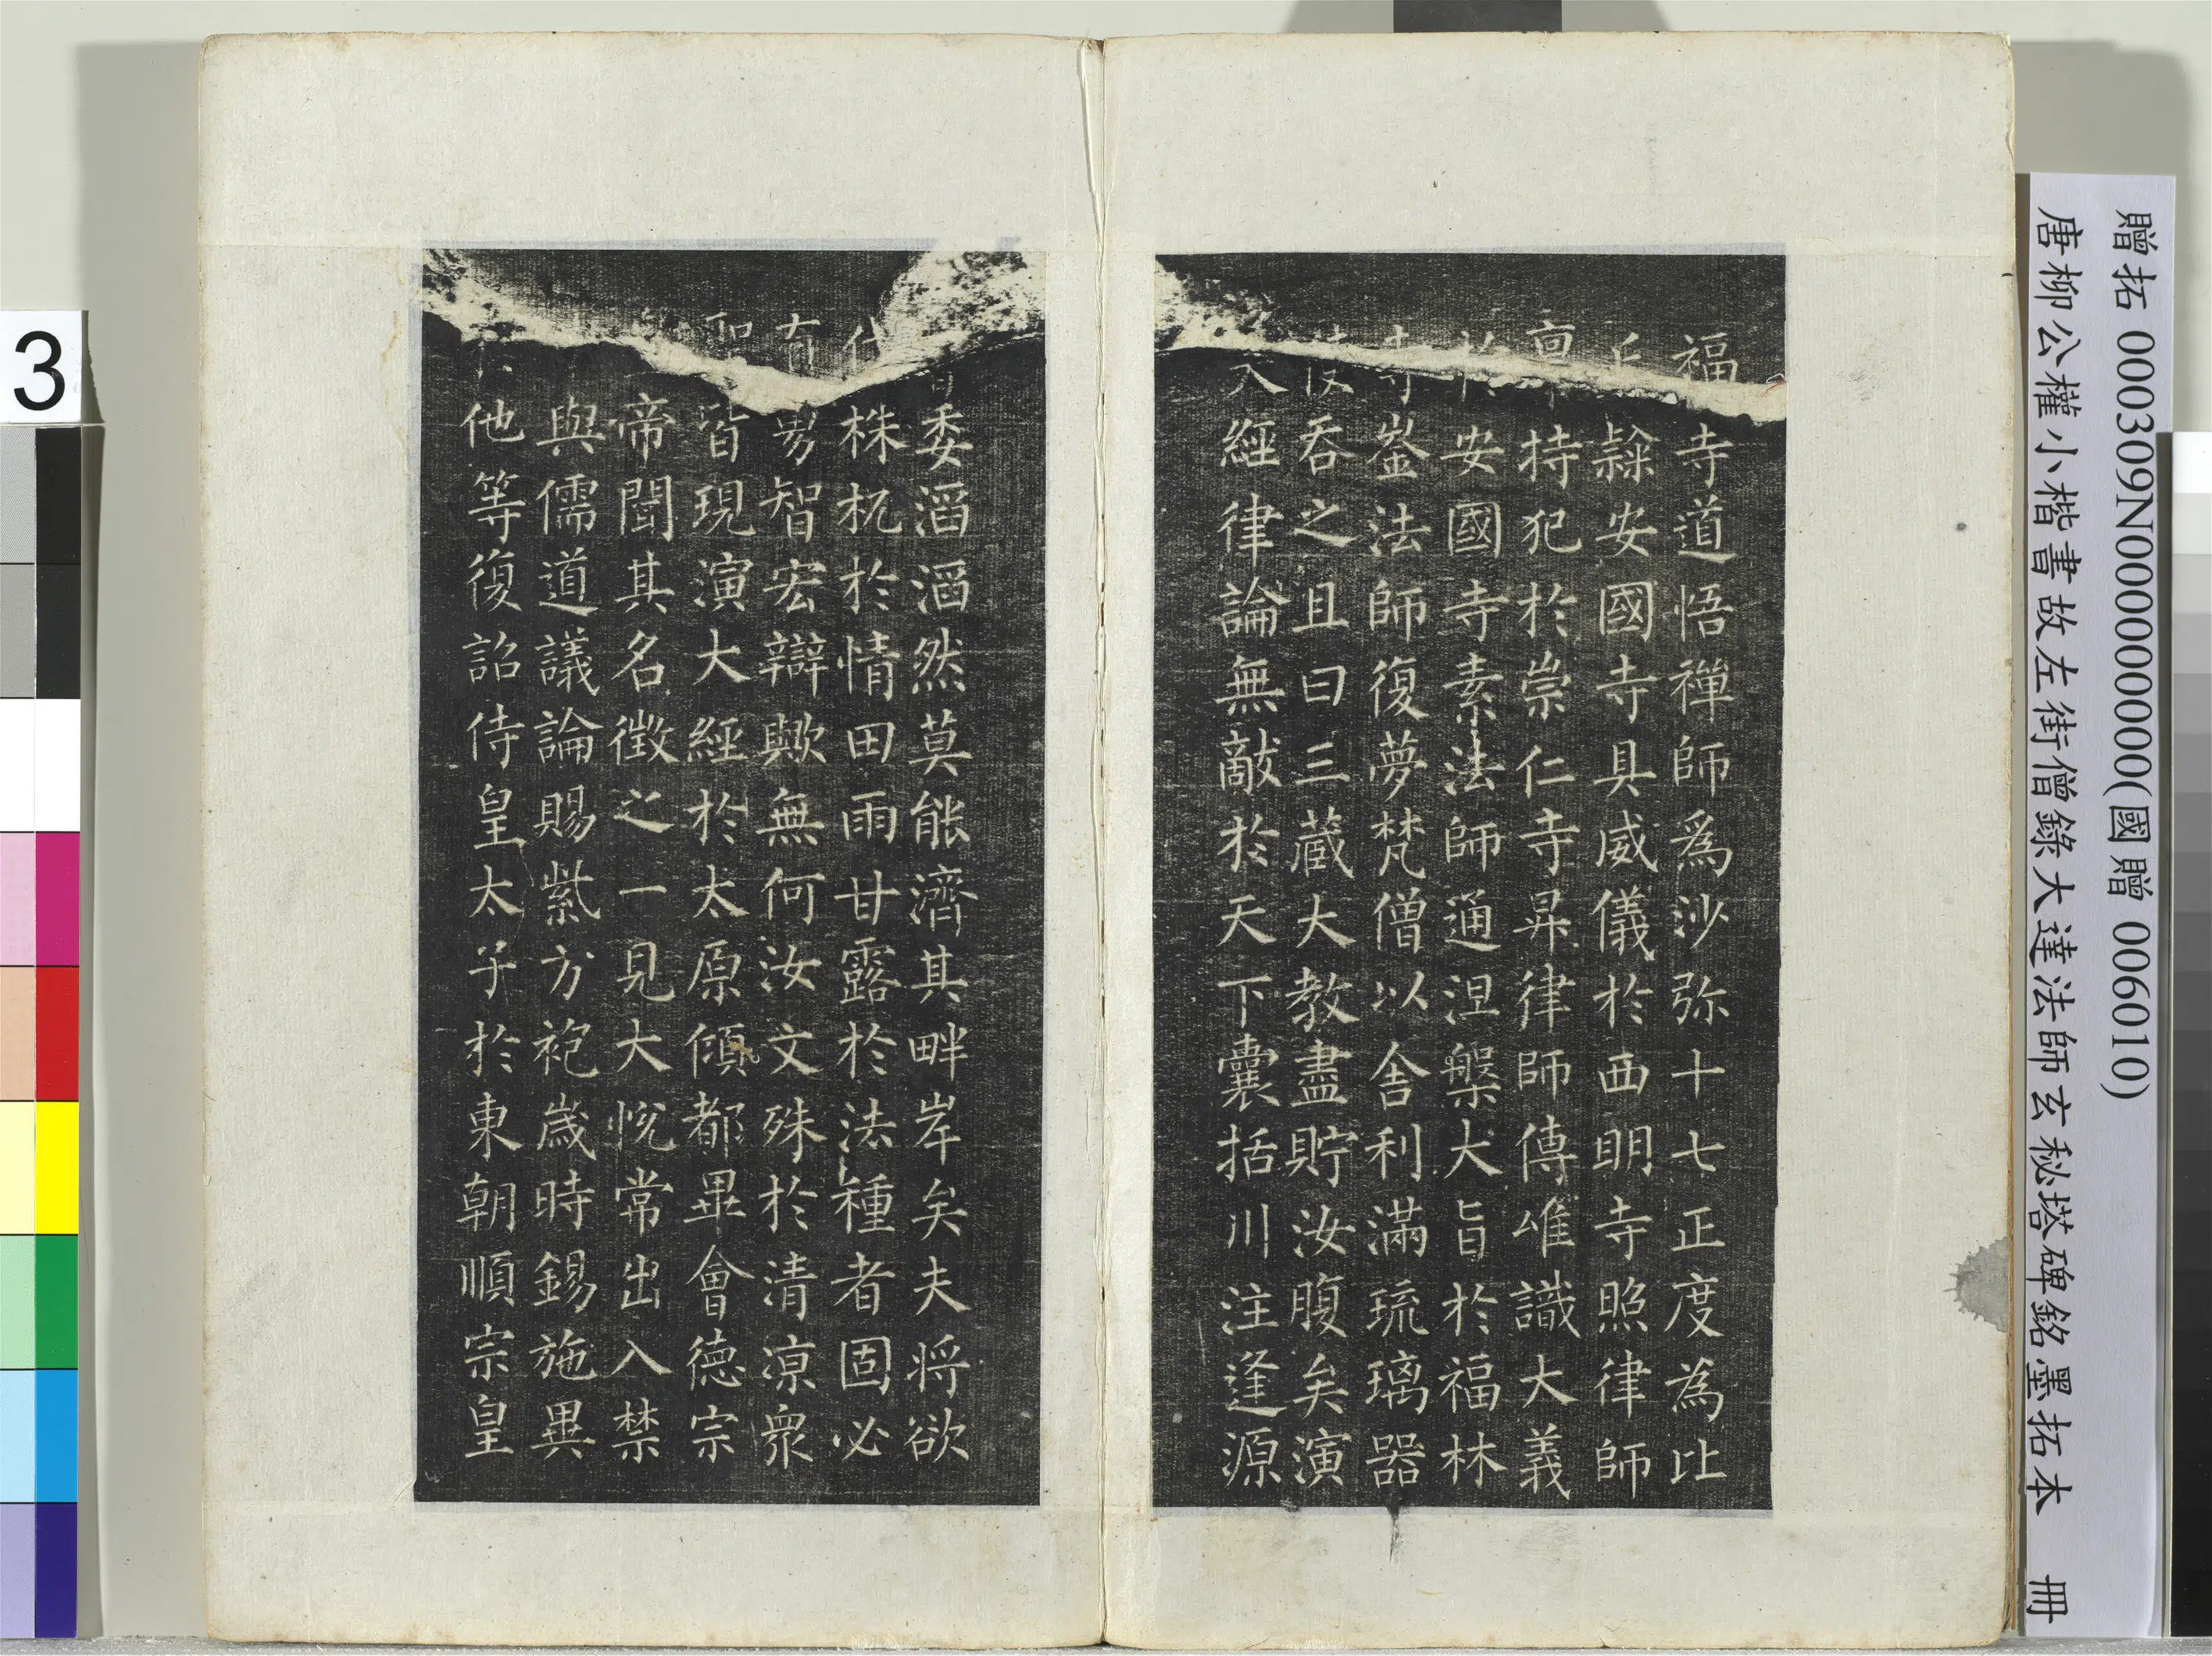 福寺道悟禪師為沙弥十七正度為比
丘隸安國寺具威儀於西明寺照律師
稟持犯於崇仁寺昇律師傳唯識大義
於安國寺素法師通涅槃大旨於福林
寺崟法師復夢梵僧以舍利滿琉璃器
使吞之且曰三藏大教盡貯汝腹矣演
大經律論無敵於天下囊括川注逢源
委滔滔然莫能濟其畔岸矣夫將欲
伐株杌於情田雨甘露於法種者固必
有勇智宏辯歟無何汝文殊於清涼眾
皆現演大經於太原傾都畢會德宗
帝聞其名徵之一見大悅常出入禁
與儒道議論賜紫方袍歲時錫施異
他等復詔侍皇太子於東朝順宗皇
贈拓 000309N000000000(國贈 006010)
唐柳公權小楷書故左街僧錄大達法師玄秘塔碑銘墨拓本 冊
3